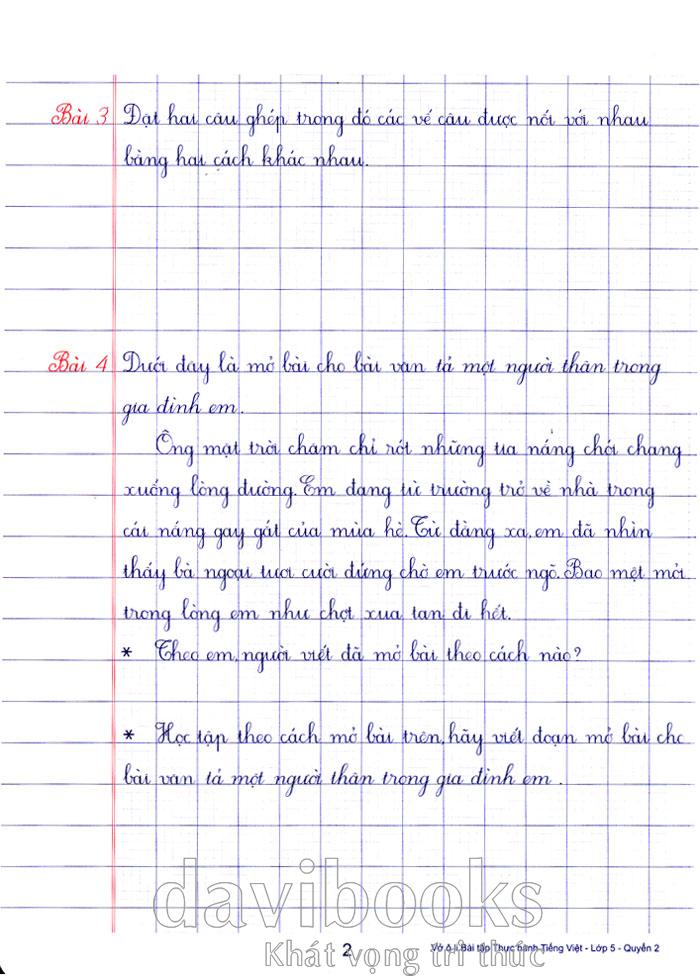 Bài 3 Đặt hai câu ghép trong đó các vế câu được nối với nhau
bằng hai cách khác nhau.
Bài 4 Dưới đây là mở bài cho bài văn tả một người thân trong
gia đình em.
Ông mặt trời chăm chỉ rót những tia nắng chói chang
xuống lòng đường. Em đang từ trường trở về nhà trong
cái nắng gay gắt của mùa hè. Từ đằng xa, em đã nhìn
thấy bà ngoại tươi cười đứng chờ em trước ngõ. Bao mệt mỏi
trong lòng em như chợt xua tan đi hết.
* Theo em, người viết đã mở bài theo cách nào?
* Học tập theo cách mở bài trên, hãy viết đoạn mở bài cho
bài văn tả một người thân trong gia đình em.
davibooks
Khát vọng tri thức
2 Vở ô li Bài tập Thực hành Tiếng Việt - Lớp 5 - Quyển 2